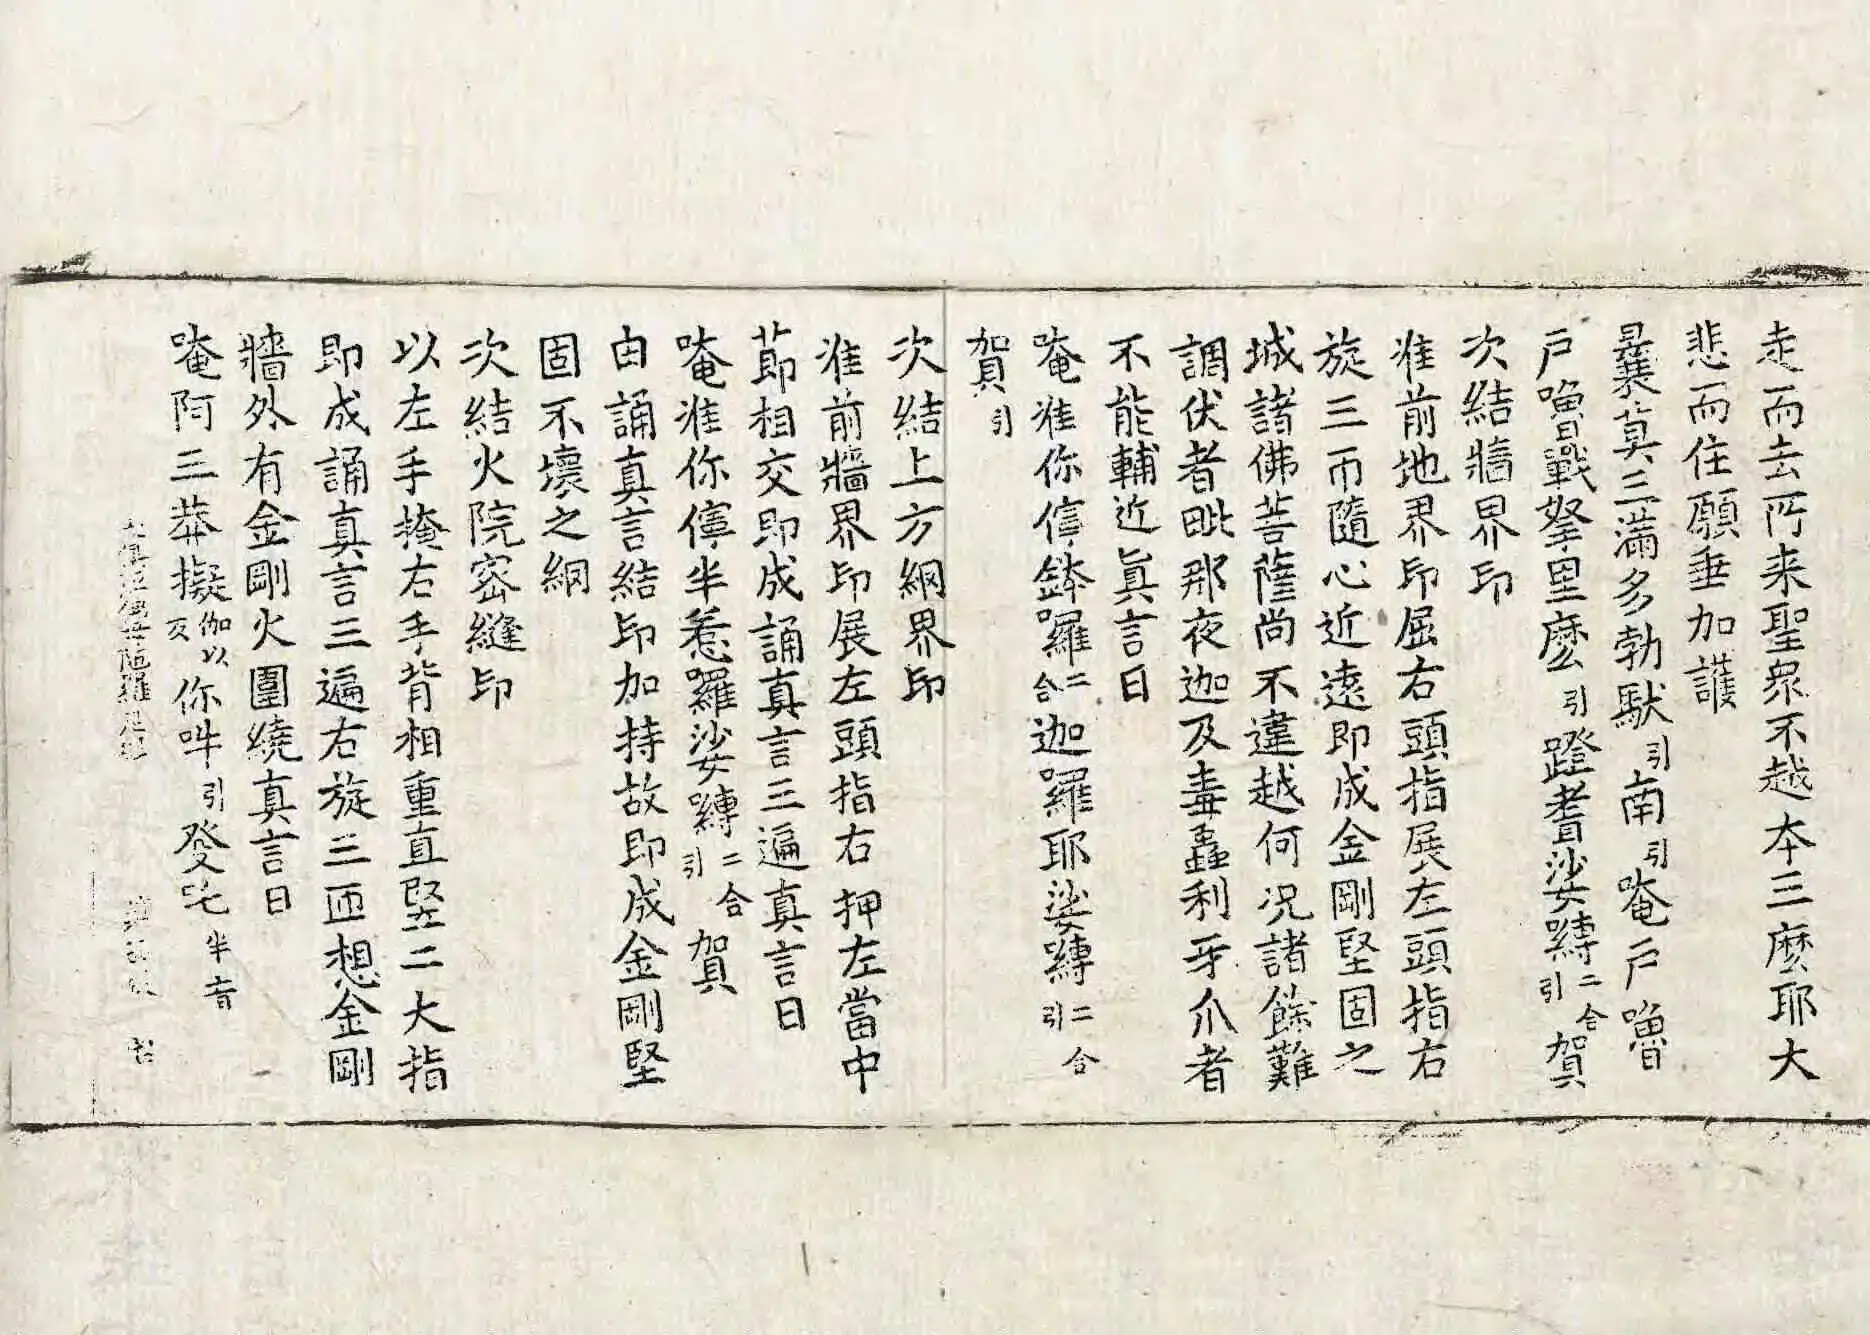 走而去所来聖衆不越本三麼耶大
悲而住願垂加護
曩莫三滿多勃馱引南引唵戸嚕
戸嚕戰拏里麼引蹬耆娑嚩二合引賀
次結牆界印
准前地界印屈右頭指展左頭指右
旋三帀隨心近遠即成金剛堅固之
城諸佛菩薩尚不違越何況諸餘難
調伏者毗那夜迦及毒蟲利牙爪者
不能輔近真言曰
唵准你儜鉢羅二合迦羅耶娑嚩二合引
賀引
次結上方網界印
准前牆界印展左頭指右押左當中
莭相交即成誦真言三遍真言曰
唵准你儜半惹羅娑嚩二合引賀
由誦真言結印加持故即成金剛堅
固不壞之網
次結火院密縫印
以左手掩右手背相重直竪二大指
即成誦真言三遍右旋三匝想金剛
牆外有金剛火圍繞真言曰
唵阿三莽擬伽以反你吽引癹吒半音